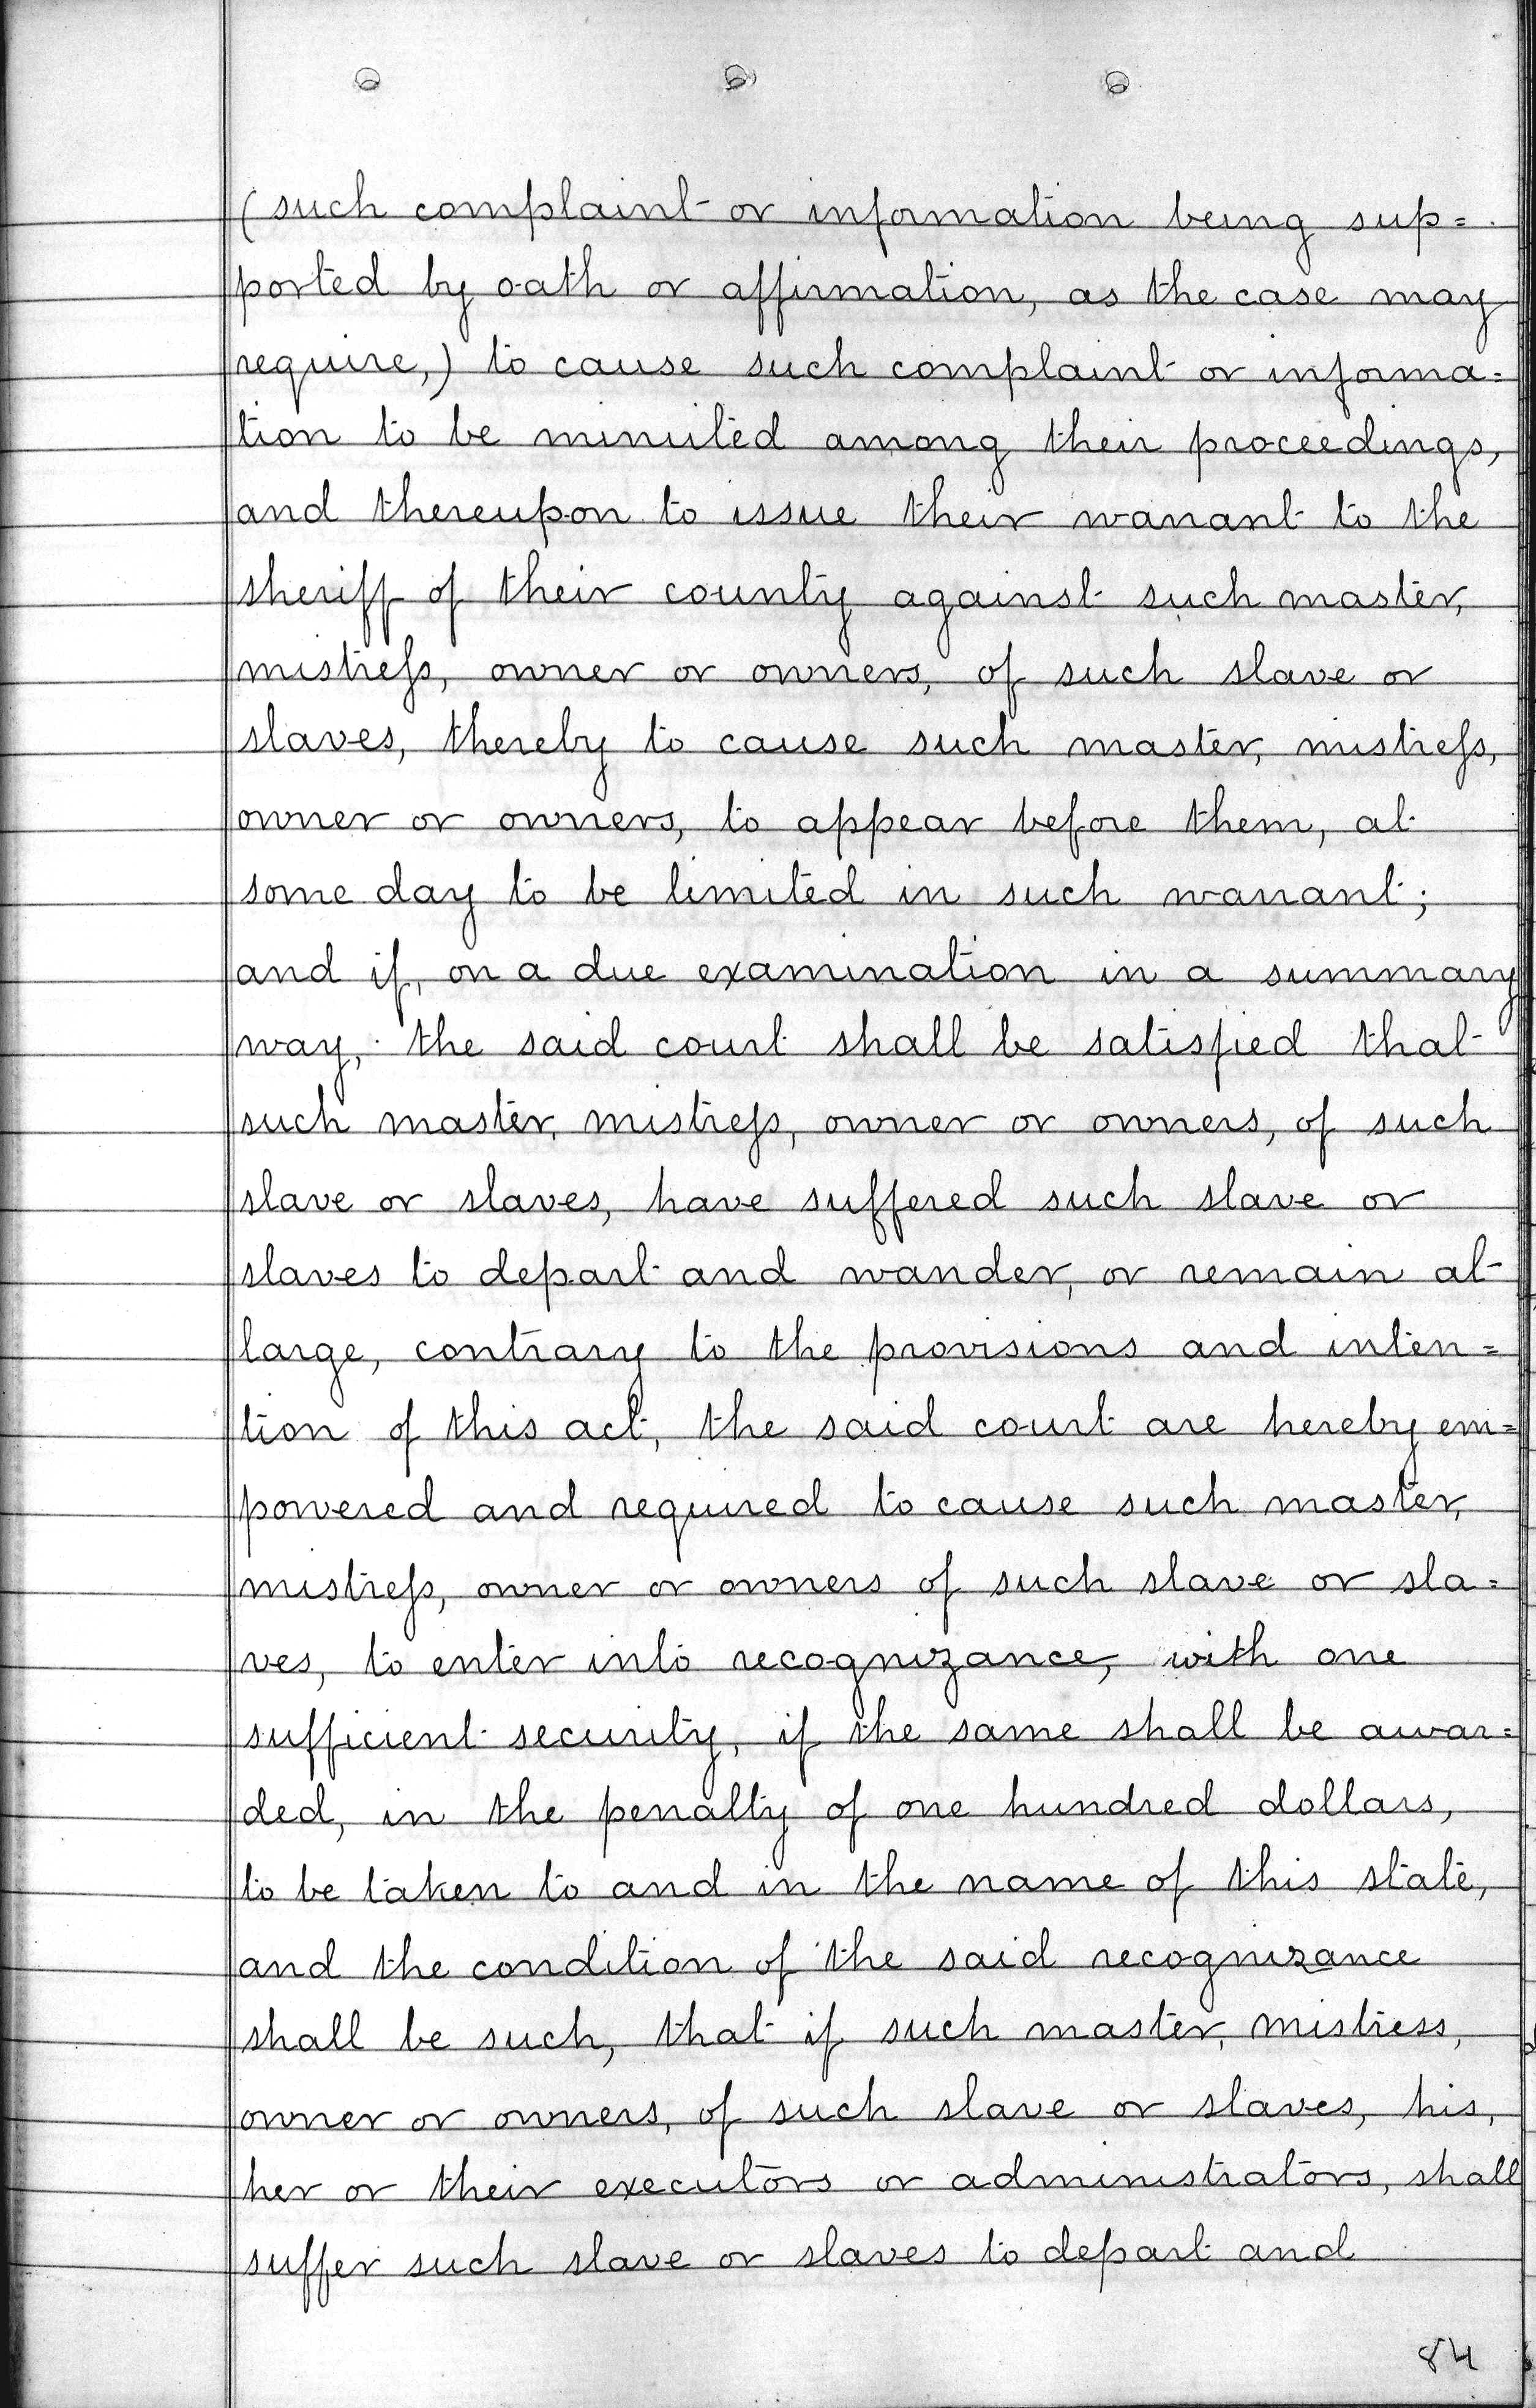 (such complaint or information being sup=
ported by oath or affirmation, as the case may
require,) to cause such complaint or informa=
tion to be minuted among their proceedings,
and thereupon to issue their warrant to the
sheriff of their county against such master,
mistreſs, owner or owners, of such slave or
slaves, thereby to cause such master, mistreſs,
owner or owners, to appear before them, at
some day to be limited in such warrant;
and if, on a due examination in a summary
way, the said court shall be satisfied that
such master, mistreſs, owner or owners, of such
slave or slaves, have suffered such slave or
slaves to depart and wander, or remain at
large, contrary to the provisions and inten=
tion of this act, the said court are hereby em=
powered and required to cause such master,
mistreſs, owner or owners of such slave or sla=
ves, to enter into recognizance, with one
sufficient security, if the same shall be awar=
ded, in the penalty of one hundred dollars,
to be taken to and in the name of this state,
and the condition of the said recognizance
shall be such, that if such master, mistress,
owner or owners, of such slave or slaves, his,
her or their executors or administrators, shall
suffer such slave or slaves to depart and
84